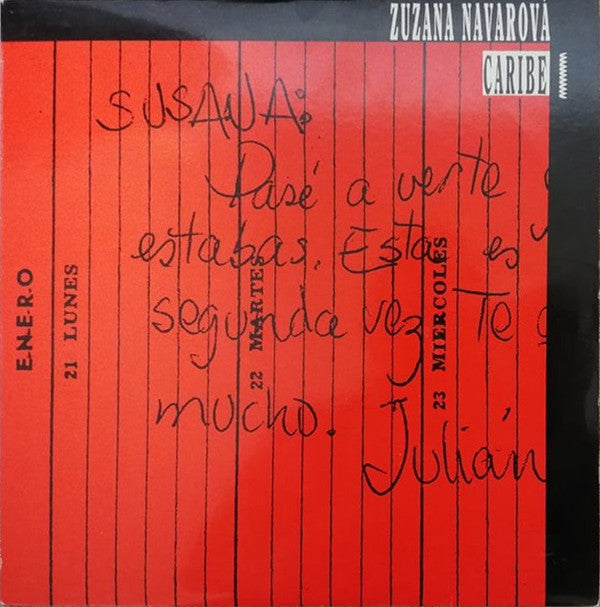 ZUZANA NAVAROVÁ
CARIBE
SUSANA:
Pasé a verte
estabas. Esta es
segunda vez Te
mucho. Julián
E-N-E-R-O
21 LUNES
22 MARTES
23 MIERCOLES